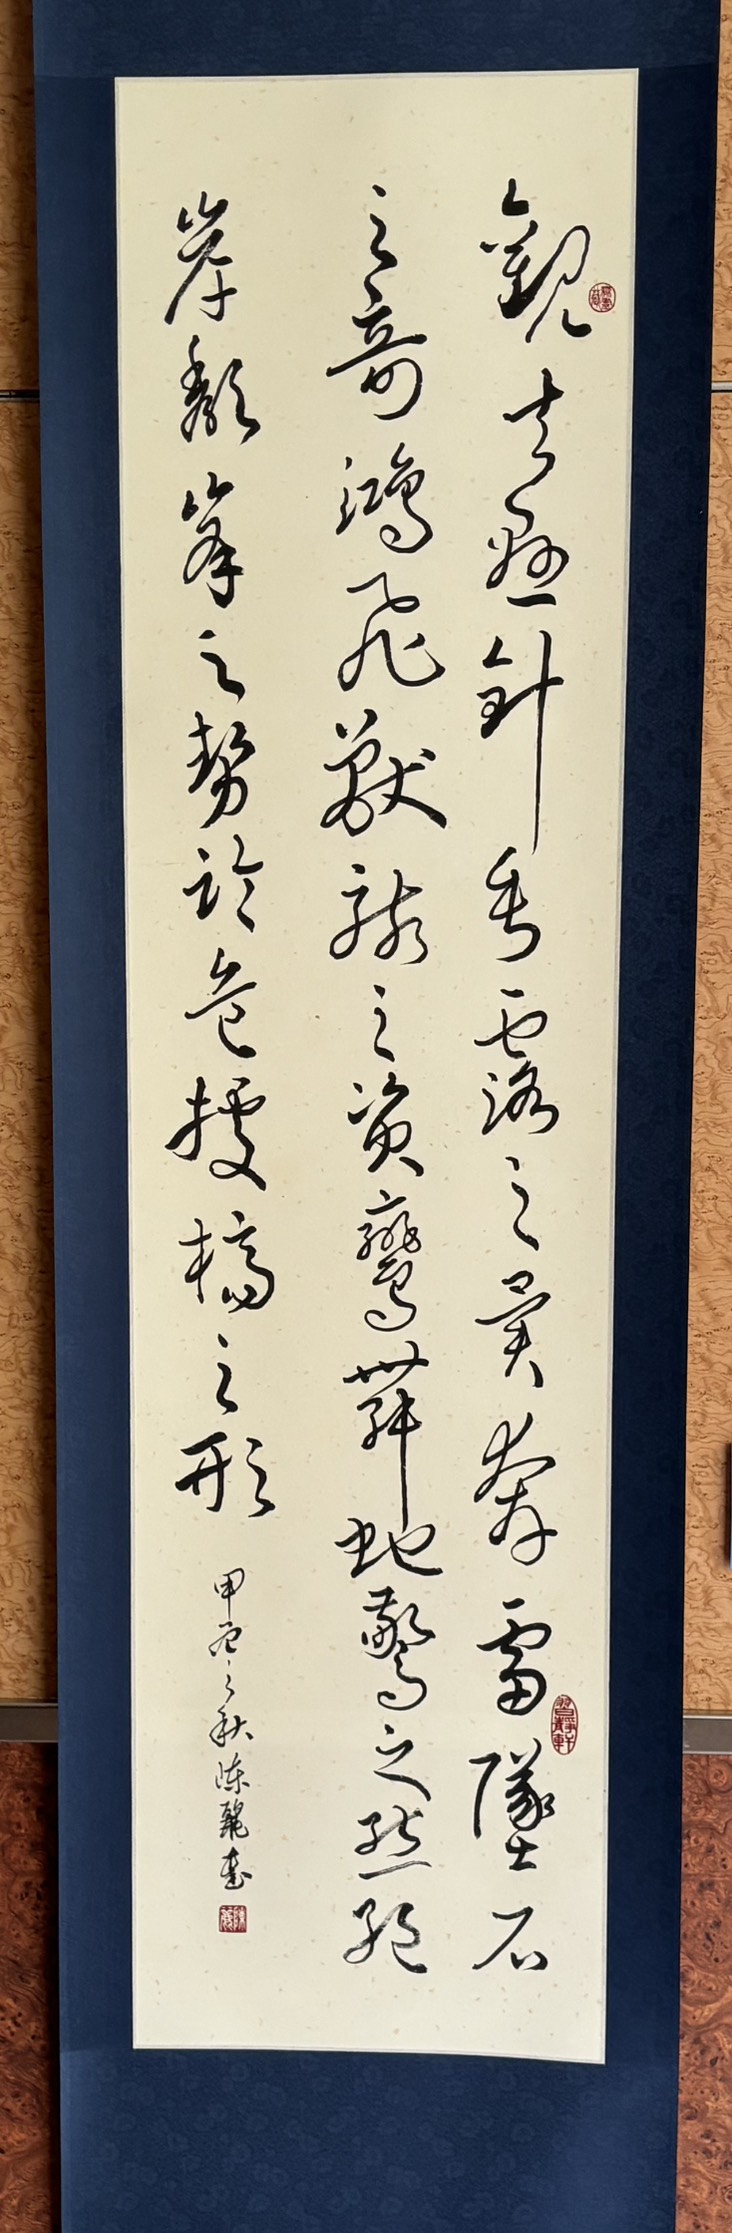 觀夫懸針垂露之異奔雷墜石
之奇鴻飛獸駭之資鸞舞蛇驚之態絕
岸頹峯之勢臨危據槁之形
甲辰之秋陳麗書